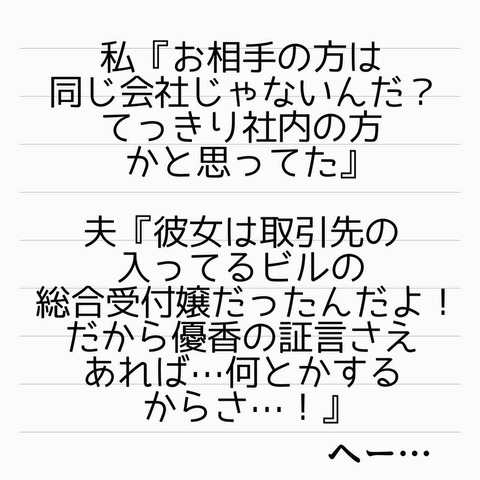 私『お相手の方は
同じ会社じゃないんだ？
てっきり社内の方
かと思ってた』
夫『彼女は取引先の
入ってるビルの
総合受付嬢だったんだよ！
だから優香の証言さえ
あれば…何とかする
からさ…！』
へー…